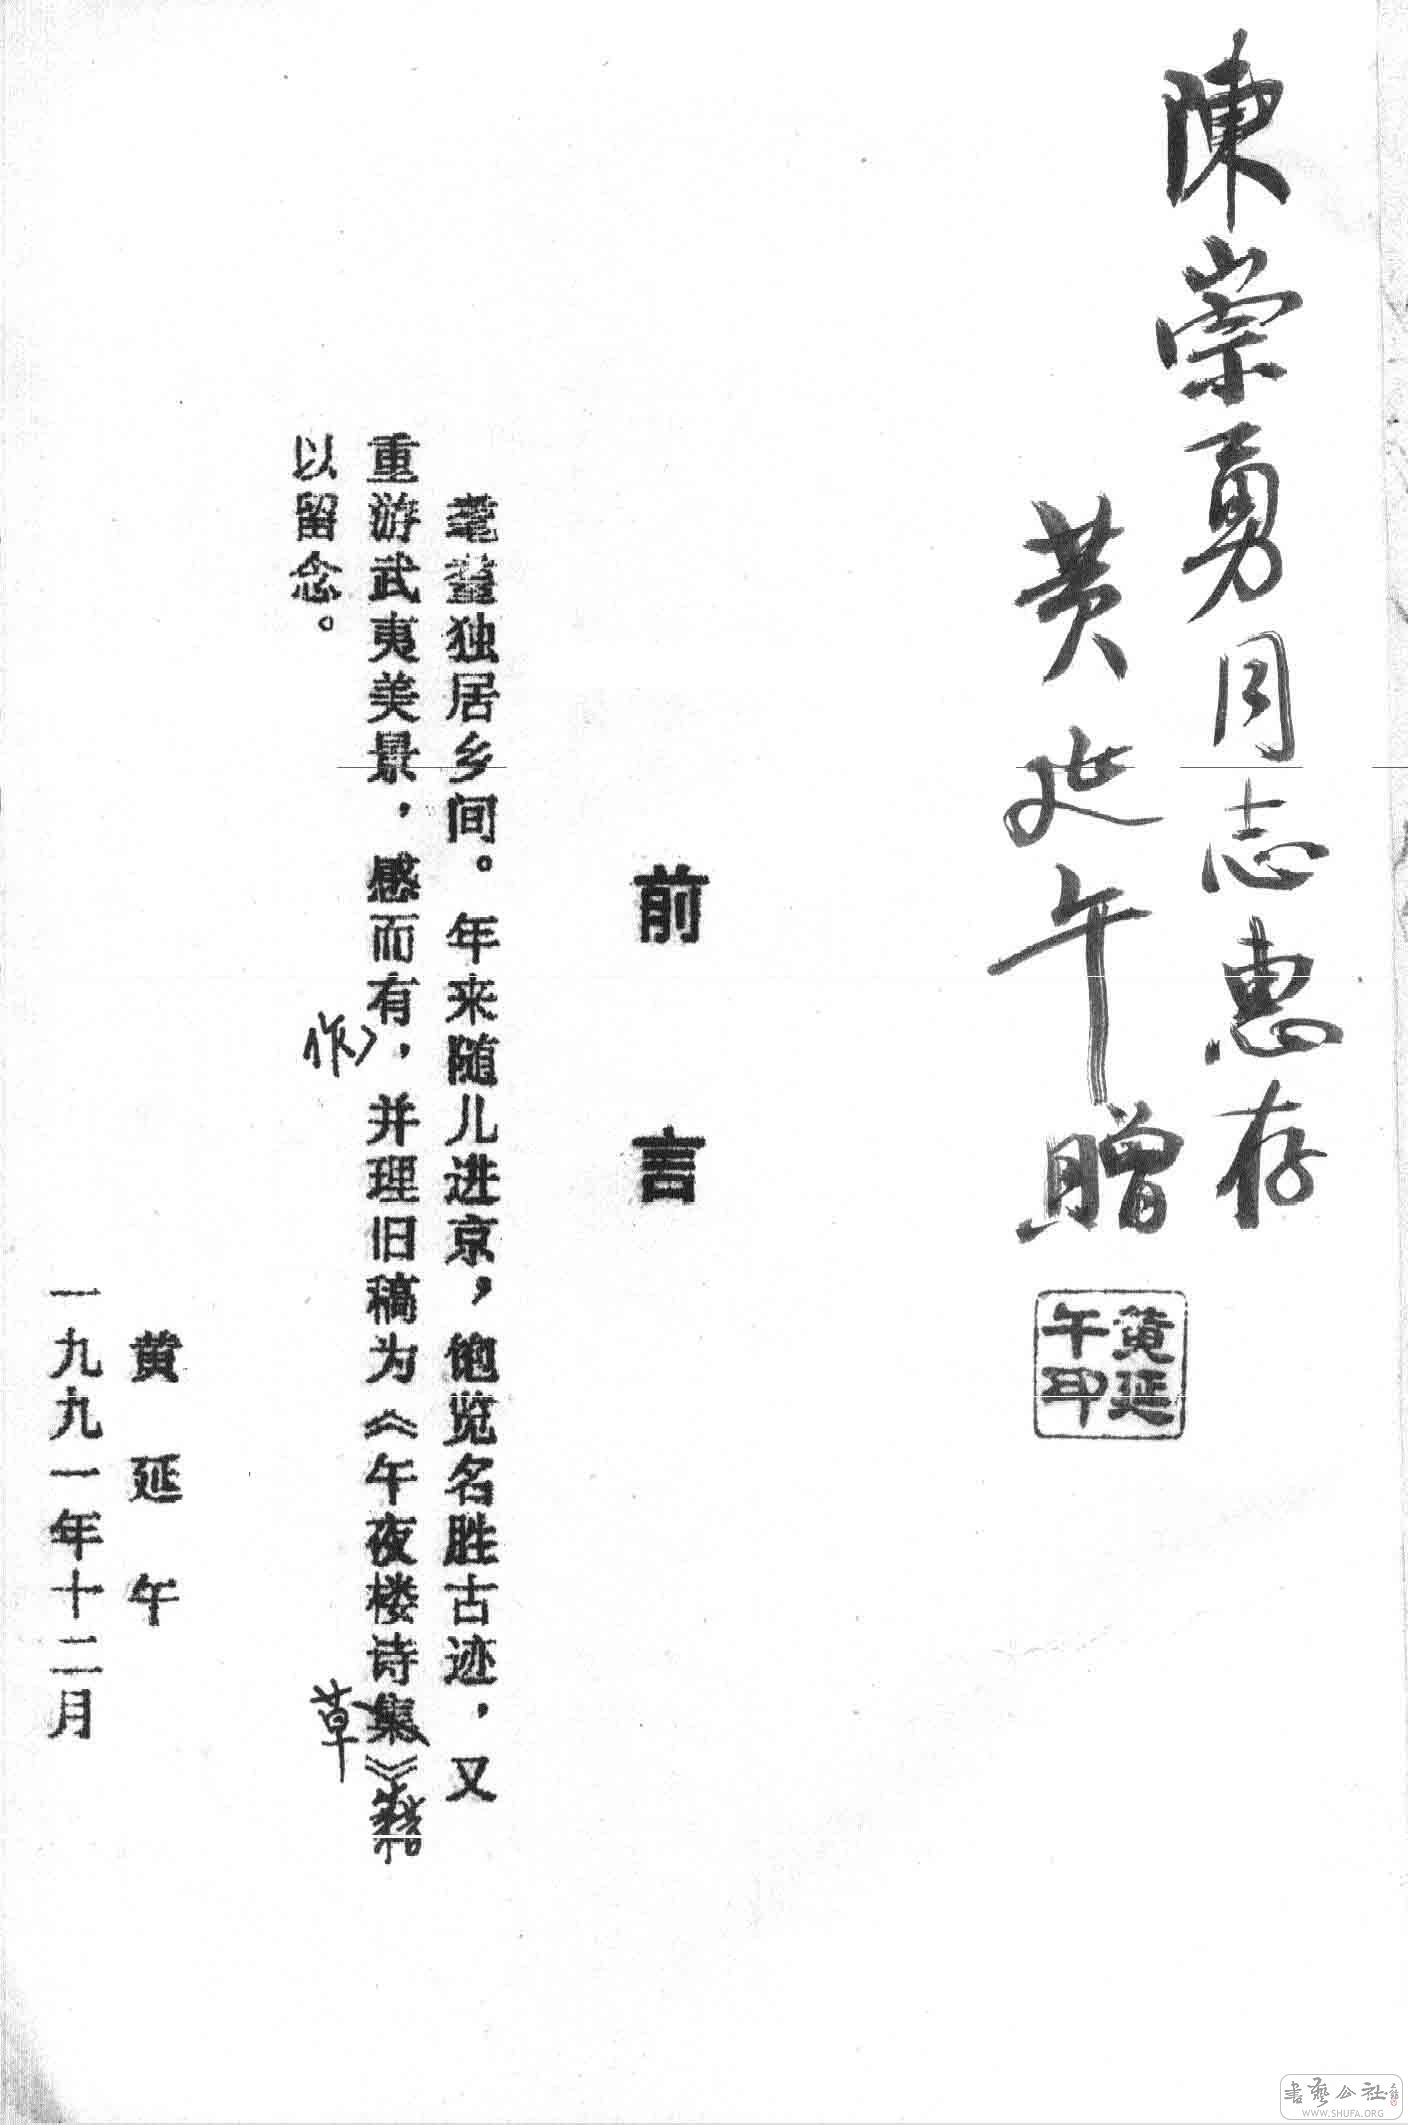 陳崇勇同志惠存
黄延午贈
黄延
午印
前言
耄耋独居乡间。年来随儿进京，饱览名胜古迹，又
重游武夷美景，感而有，并理旧稿为《午夜楼诗集》
作
草
以留念。
黄延午
一九九一年十二月
書藝公社
WWW.SHUFA.ORG